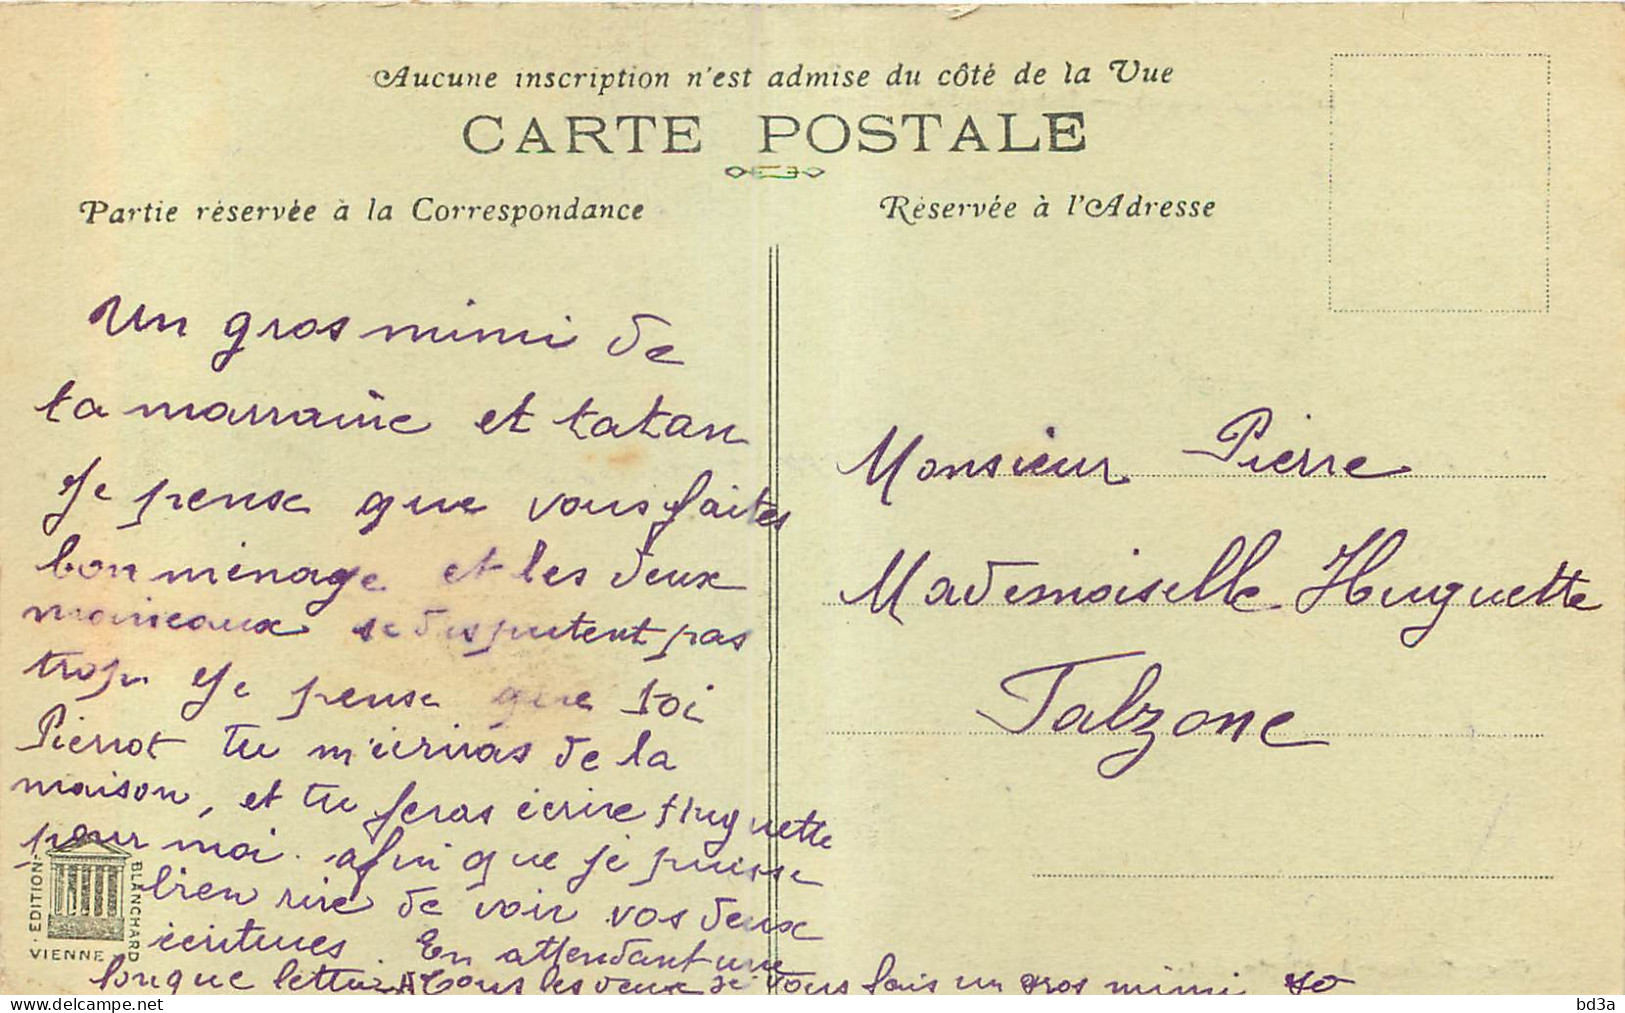 Aucune inscription n'est admise du côté de la Vue
CARTE POSTALE
Partie réservée à la Correspondance
Réservée à l'Adresse
Un gros mimi de
ta marraine et tatan
Je pense que vous faites
bon ménage et les deux
moineaux se disputent pas
trop Je pense que toi
Pierrot tu m'ecriras de la
maison, et tu feras écrire Huguette
pour moi. afin que je puisse
bien rire de voir vos deux
écritures. En attendant une
longue lettre A tous les deux je vous fais un gros mimi
Monsieur Pierre
Mademoiselle Huguette
Talzone
EDITION BLANCHARD
VIENNE
bd3a